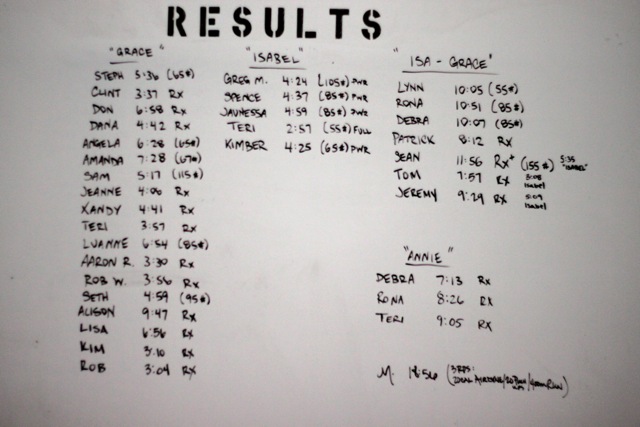 RESULTS
"GRACE"
STEPH 5:36 (65#)
CLINT 3:37 Rx
DON 6:58 Rx
DANA 4:42 Rx
ANGELA 6:28 (65#)
AMANDA 7:28 (67#)
SAM 5:17 (115#)
JEANNE 4:06 Rx
XANDY 4:41 Rx
TERI 3:57 Rx
LUANNE 6:54 (85#)
AARON R. 3:30 Rx
ROB W. 3:56 Rx
SETH 4:59 (95#)
ALISON 9:47 Rx
LISA 6:56 Rx
KIM 3:10 Rx
ROB 3:04 Rx
"ISABEL"
GREG M. 4:24 (105#) PWR
SPENCE 4:37 (85#) PWR
JAUNESSA 4:59 (85#) PWR
TERI 2:57 (55#) FULL
KIMBER 4:25 (65#) PWR
"ISA-GRACE"
LYNN 10:05 (55#)
RONA 10:51 (85#)
DEBRA 10:07 (85#)
PATRICK 8:12 Rx
SEAN 11:56 Rx+ (155#) 5:35 "ISABEL"
TOM 7:57 Rx 3:08 Isabel
JEREMY 9:29 Rx 5:09 Isabel
"ANNIE"
DEBRA 7:13 Rx
RONA 8:26 Rx
TERI 9:05 Rx
M. 18:56 (3 RDS: